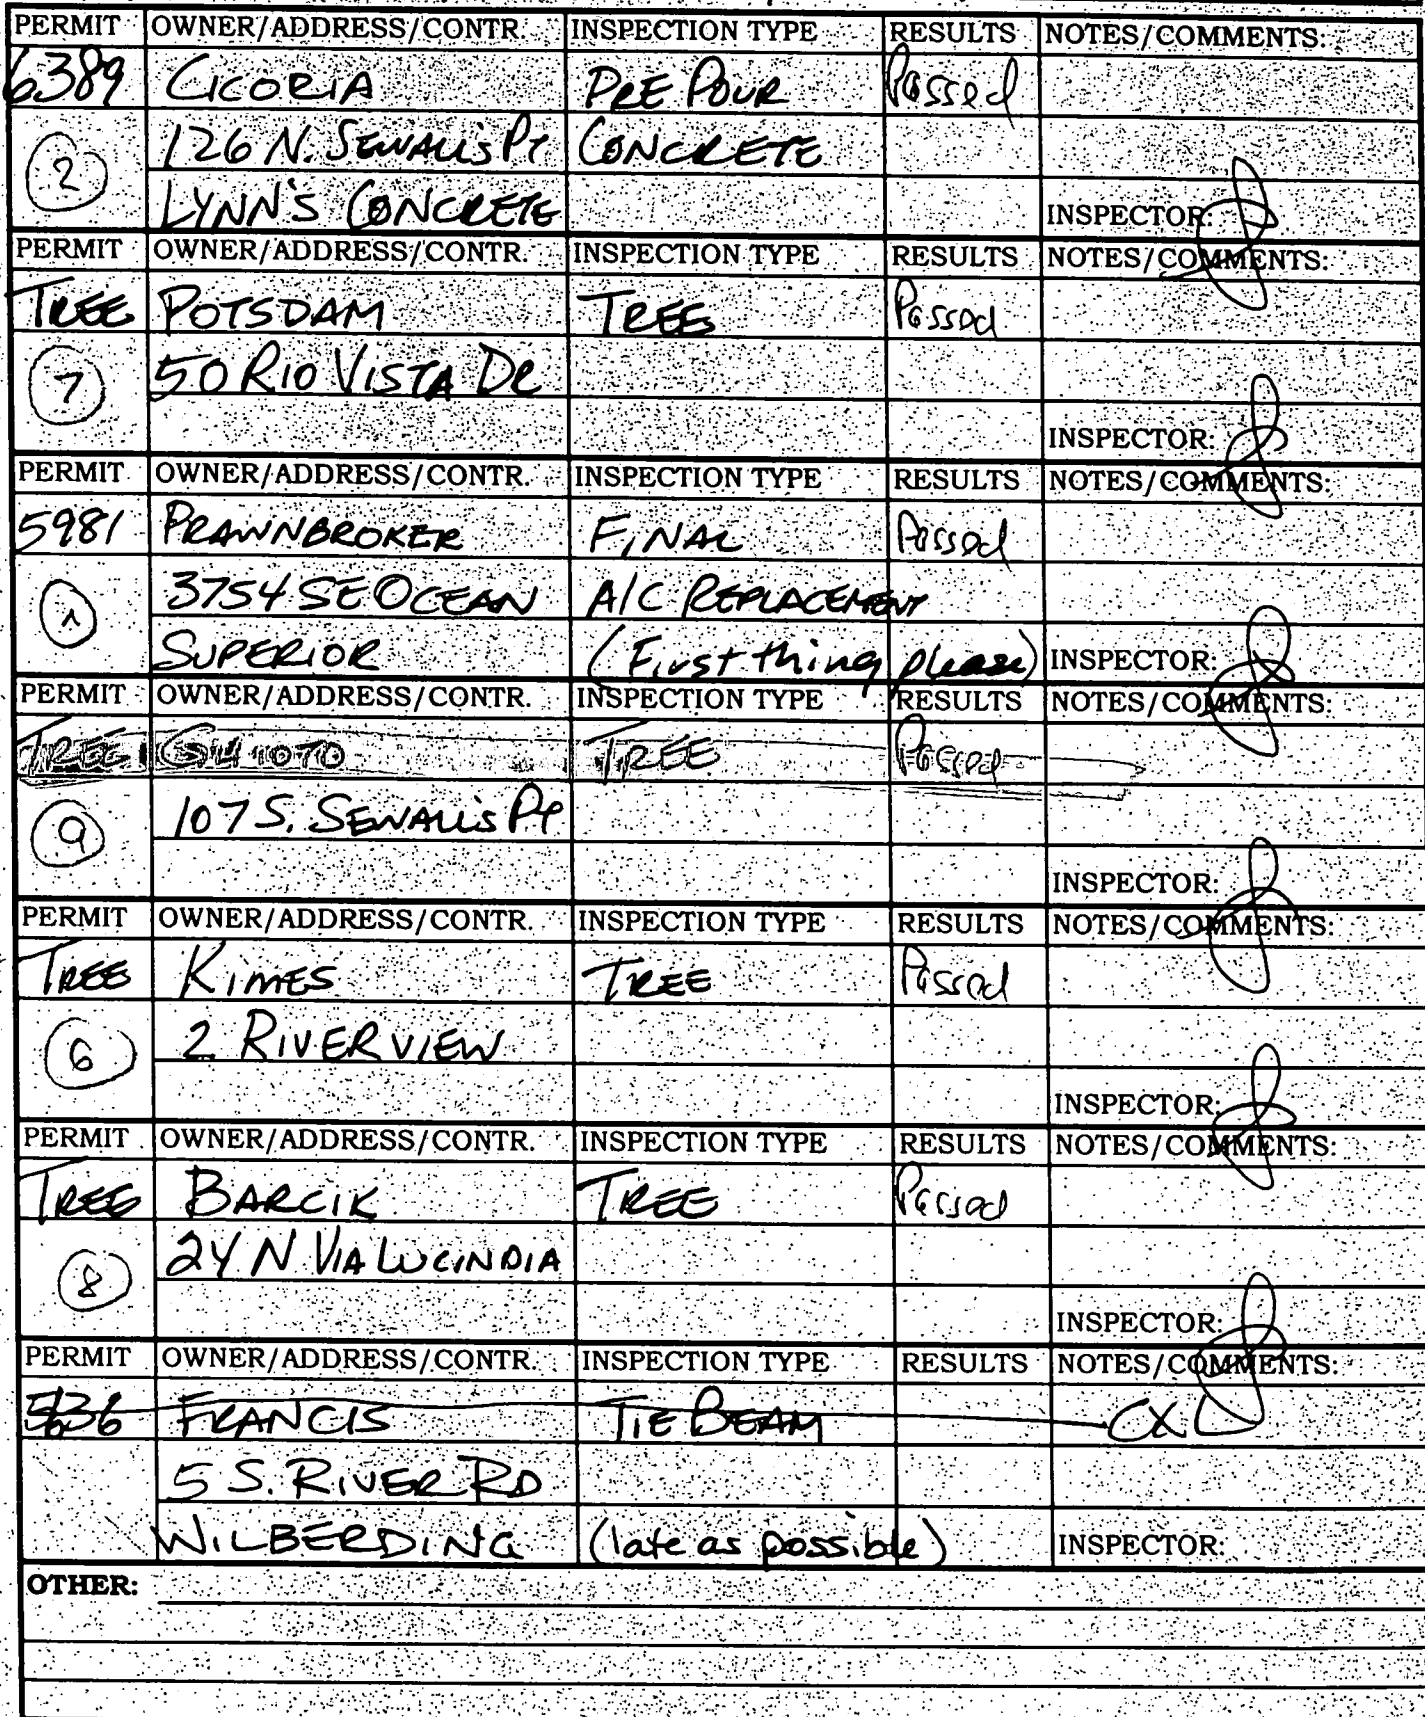 PERMIT OWNER/ADDRESS/CONTR. INSPECTION TYPE RESULTS NOTES/COMMENTS:
6389 CICORIA PRE POUR Passed
2 126 N. SEWALL'S PT CONCRETE
LYNN'S CONCRETE INSPECTOR:
PERMIT OWNER/ADDRESS/CONTR. INSPECTION TYPE RESULTS NOTES/COMMENTS:
TREE POTSDAM TREE Passed
7 50 RIO VISTA DR
INSPECTOR:
PERMIT OWNER/ADDRESS/CONTR. INSPECTION TYPE RESULTS NOTES/COMMENTS:
5981 PRAWNBROKER FINAL Passed
1 3754 SE OCEAN A/C REPLACEMENT
SUPERIOR (First thing please) INSPECTOR:
PERMIT OWNER/ADDRESS/CONTR. INSPECTION TYPE RESULTS NOTES/COMMENTS:
TREE TREE Passed
9 107 S. SEWALL'S PT
INSPECTOR:
PERMIT OWNER/ADDRESS/CONTR. INSPECTION TYPE RESULTS NOTES/COMMENTS:
TREE KIMES TREE Passed
6 2 RIVERVIEW
INSPECTOR:
PERMIT OWNER/ADDRESS/CONTR. INSPECTION TYPE RESULTS NOTES/COMMENTS:
TREE BARCIK TREE Passed
8 24 N. VIA LUCINDIA
INSPECTOR:
PERMIT OWNER/ADDRESS/CONTR. INSPECTION TYPE RESULTS NOTES/COMMENTS:
FRANCIS TIE BEAM CXL
5 S. RIVER RD
WILBERDING (late as possible) INSPECTOR:
OTHER: